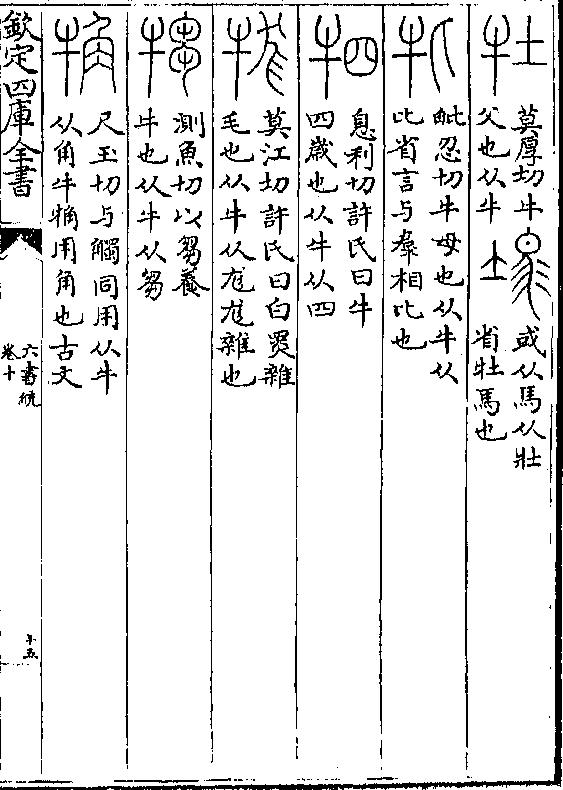 牡 莫厚切牛
父也从牛
或从馬从壯
省牡馬也
牝 毗忍切牛母也从牛从
比省言与羣相比也
牭 息利切許氏曰牛
四歳也从牛从四
牻 莫江切許氏曰白黑雜
毛也从牛从尨尨雜也
犓 測魚切以芻養
牛也从牛从芻
觕 尺玉切与觸同用从牛
从角牛觕用角也古文
欽定四庫全書
六書統
卷十
十五